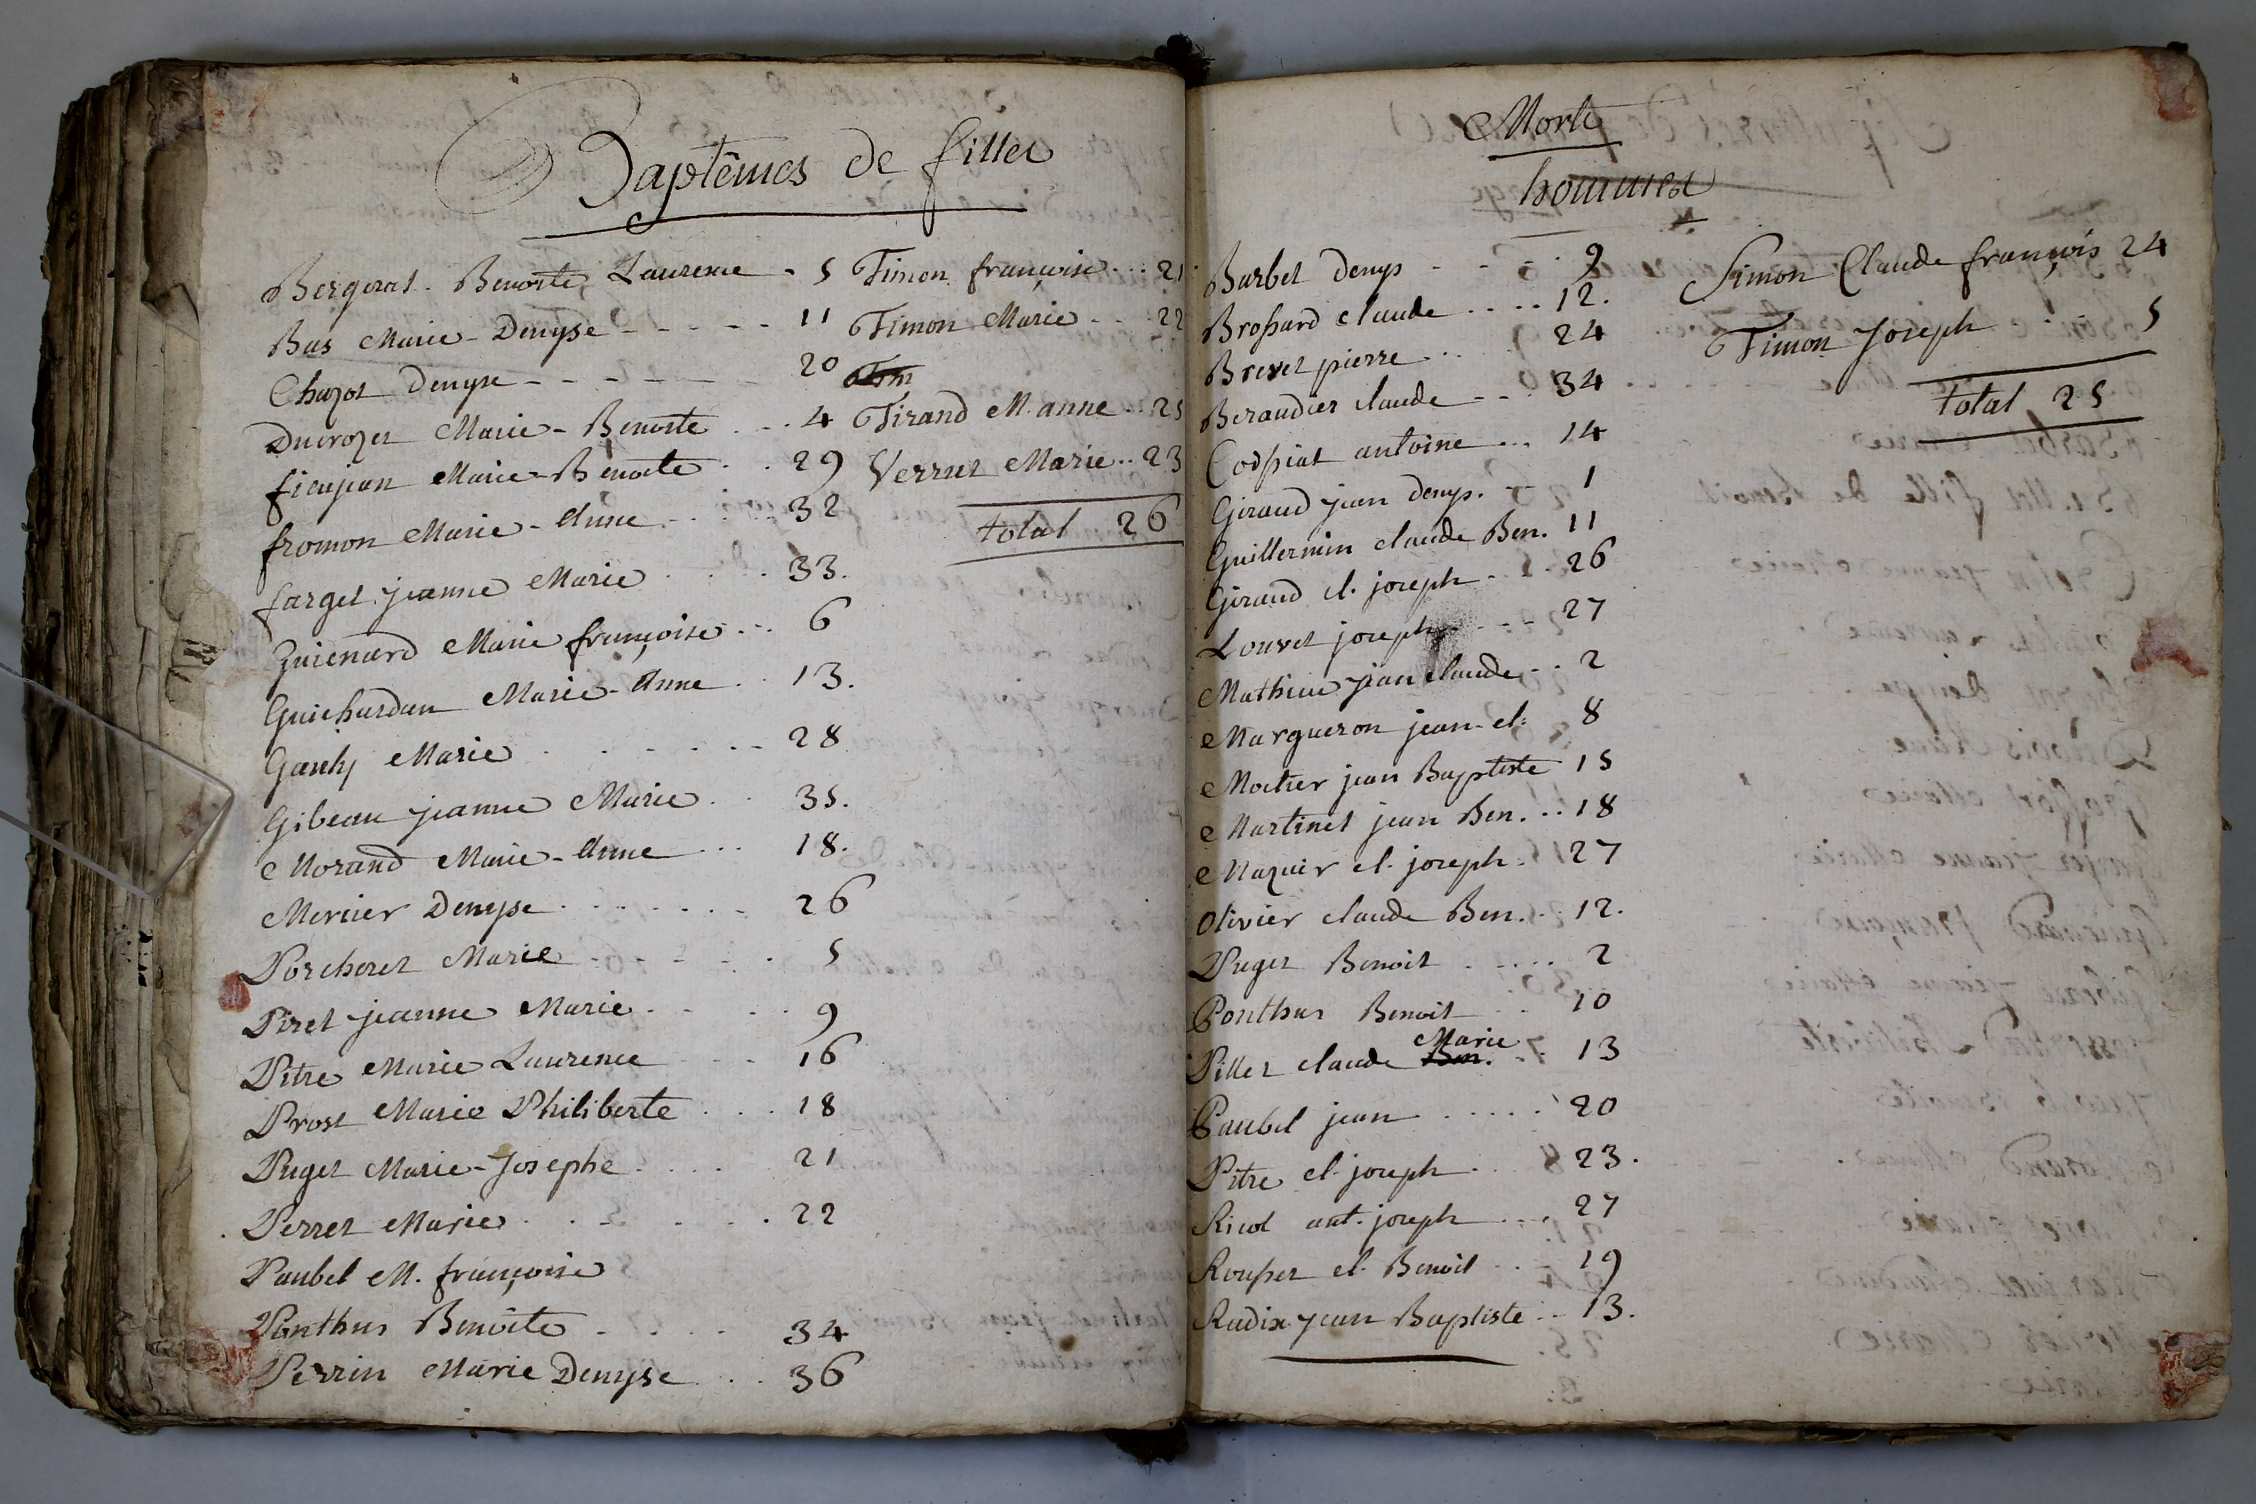 Baptêmes de filles
Bergerat. Benoite, Laurence - 5
Bas Marie-Denyse - - - - - 11
Chazot Denyse - - - - - - 20
Ducrozet Marie-Benoite . . . 4
ficujean Marie-Benoite . . 29
fromon Marie-Anne . . . . 32
farget jeanne Marie . . . . 33.
Guienard Marie françoise . . . 6
Guichardan Marie-Anne . . 13.
Marie . . . . . . 28
Gibeau jeanne Marie . . 35.
Morand Marie-Anne . . . 18.
Mercier Denyse . . . . . . . 26
Porcheret Marie - - - - - . 5
Piret jeanne Marie . . . . . 9
Pitre Marie Laurence . . . 16
Prost Marie Philiberte . . . 18
Puget Marie-Josephe . . . . 21
Perret Marie . . . . . . 22
Paubel M. françoise
Ponthus Benoite . . . . 34
Perrin Marie Denyse . . 36
Timon françoise . . . 21
Timon Marie . . . 22
Tim
Tirand M. anne . . 25
Verrut Marie . . 23
total 26
Morts
hommes
Barbet Denys - - - - 9
Broßard claude . . . . 12.
Brevet pierre . . . 24
Beraudier claude - - . 34
Codpiat antoine . . . 14
Giraud jean denys. - 1
Guillermin claude Ben. 11
Giraud cl. joseph . . . 26
Louvet joseph . . . - - 27
Mathieu jean claude - . 2
Margueron jean-cl. 8
Motier jean Baptiste 15
Martinet jean Ben. . . 18
Mazuir cl. joseph . 27
Olivier claude Ben. . . 12.
Puget Benoit . . . . . 2
Ponthus Benoit . . 10
Marie
Pillet claude Ben. . . 13
Paubel jean . . . . . . 20
Pitre cl. joseph . . . 23.
Ricol ant. joseph . . . . 27
Roußet cl. Benoit . . . 19
Rudix jean Baptiste . . 13.
Simon Claude françois 24
Timon Joseph . . . 5
total 25